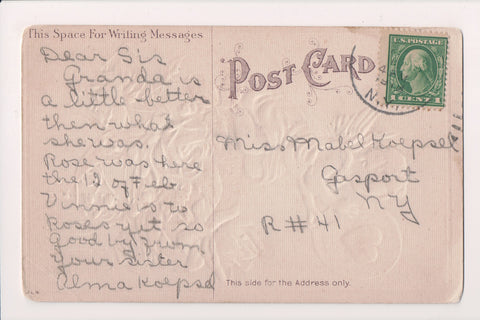 This Space For Writing Messages
Dear Sis
Granda is
a little better
then what
she was.
Rose was here
the 12 of Feb
Vinnie is to
Roses yet so
Good by from
your sister
Alma Koepsel
POST CARD
U.S. POSTAGE
1 CENT 1
N.Y.
Miss Mabel Koepsel
Gasport
NY
R # 41
This side for the Address only.